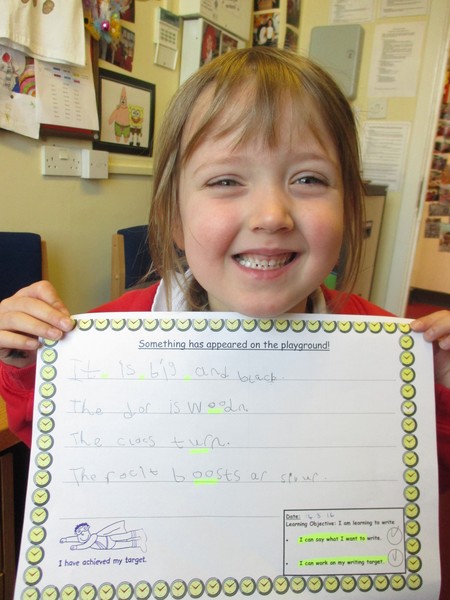 Something has appeared on the playground!
It is big and black.
The dor is woodn
The clocs turn.
The rocit boosts ar silvur
Date: 16 3 16
Learning Objective: I am learning to write
I can say what I want to write.
I can work on my writing target.
I have achieved my target.